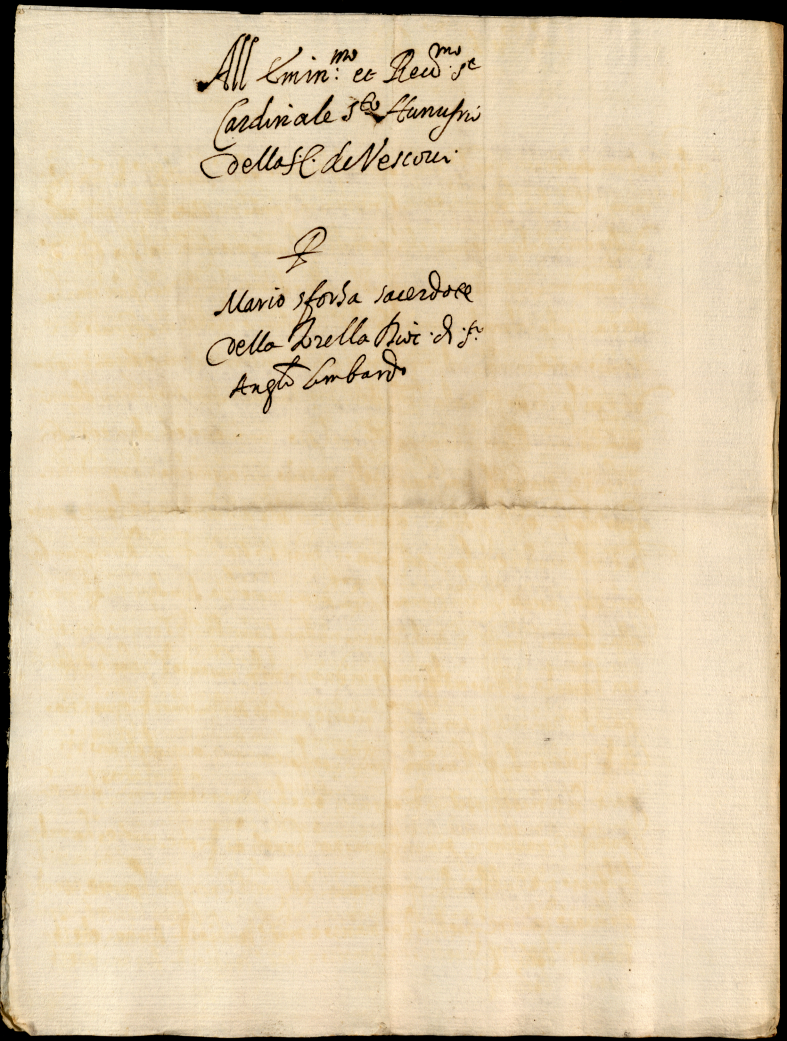 All Emin.mo et Reud.mo Sr
Cardinale Sto Hunufrio
della S.C. de Vescoui
P
Mario sforsa sacerdote
della Torella di S.to
Angelo Lombardo